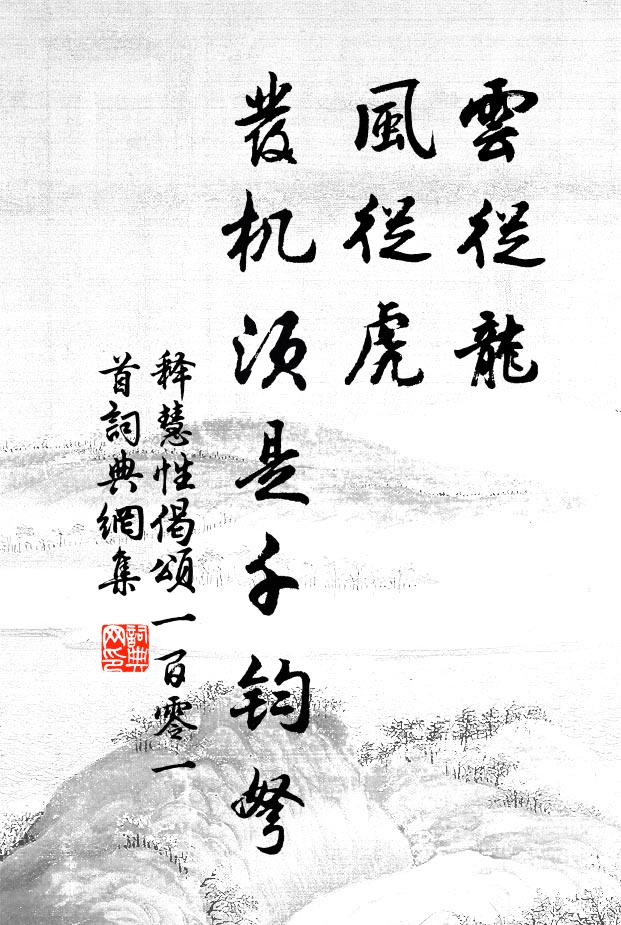 雲從龍
風從虎
發机須是千鈞弩
释慧性偈頌一百零一
首詞典網集
詞典
网印